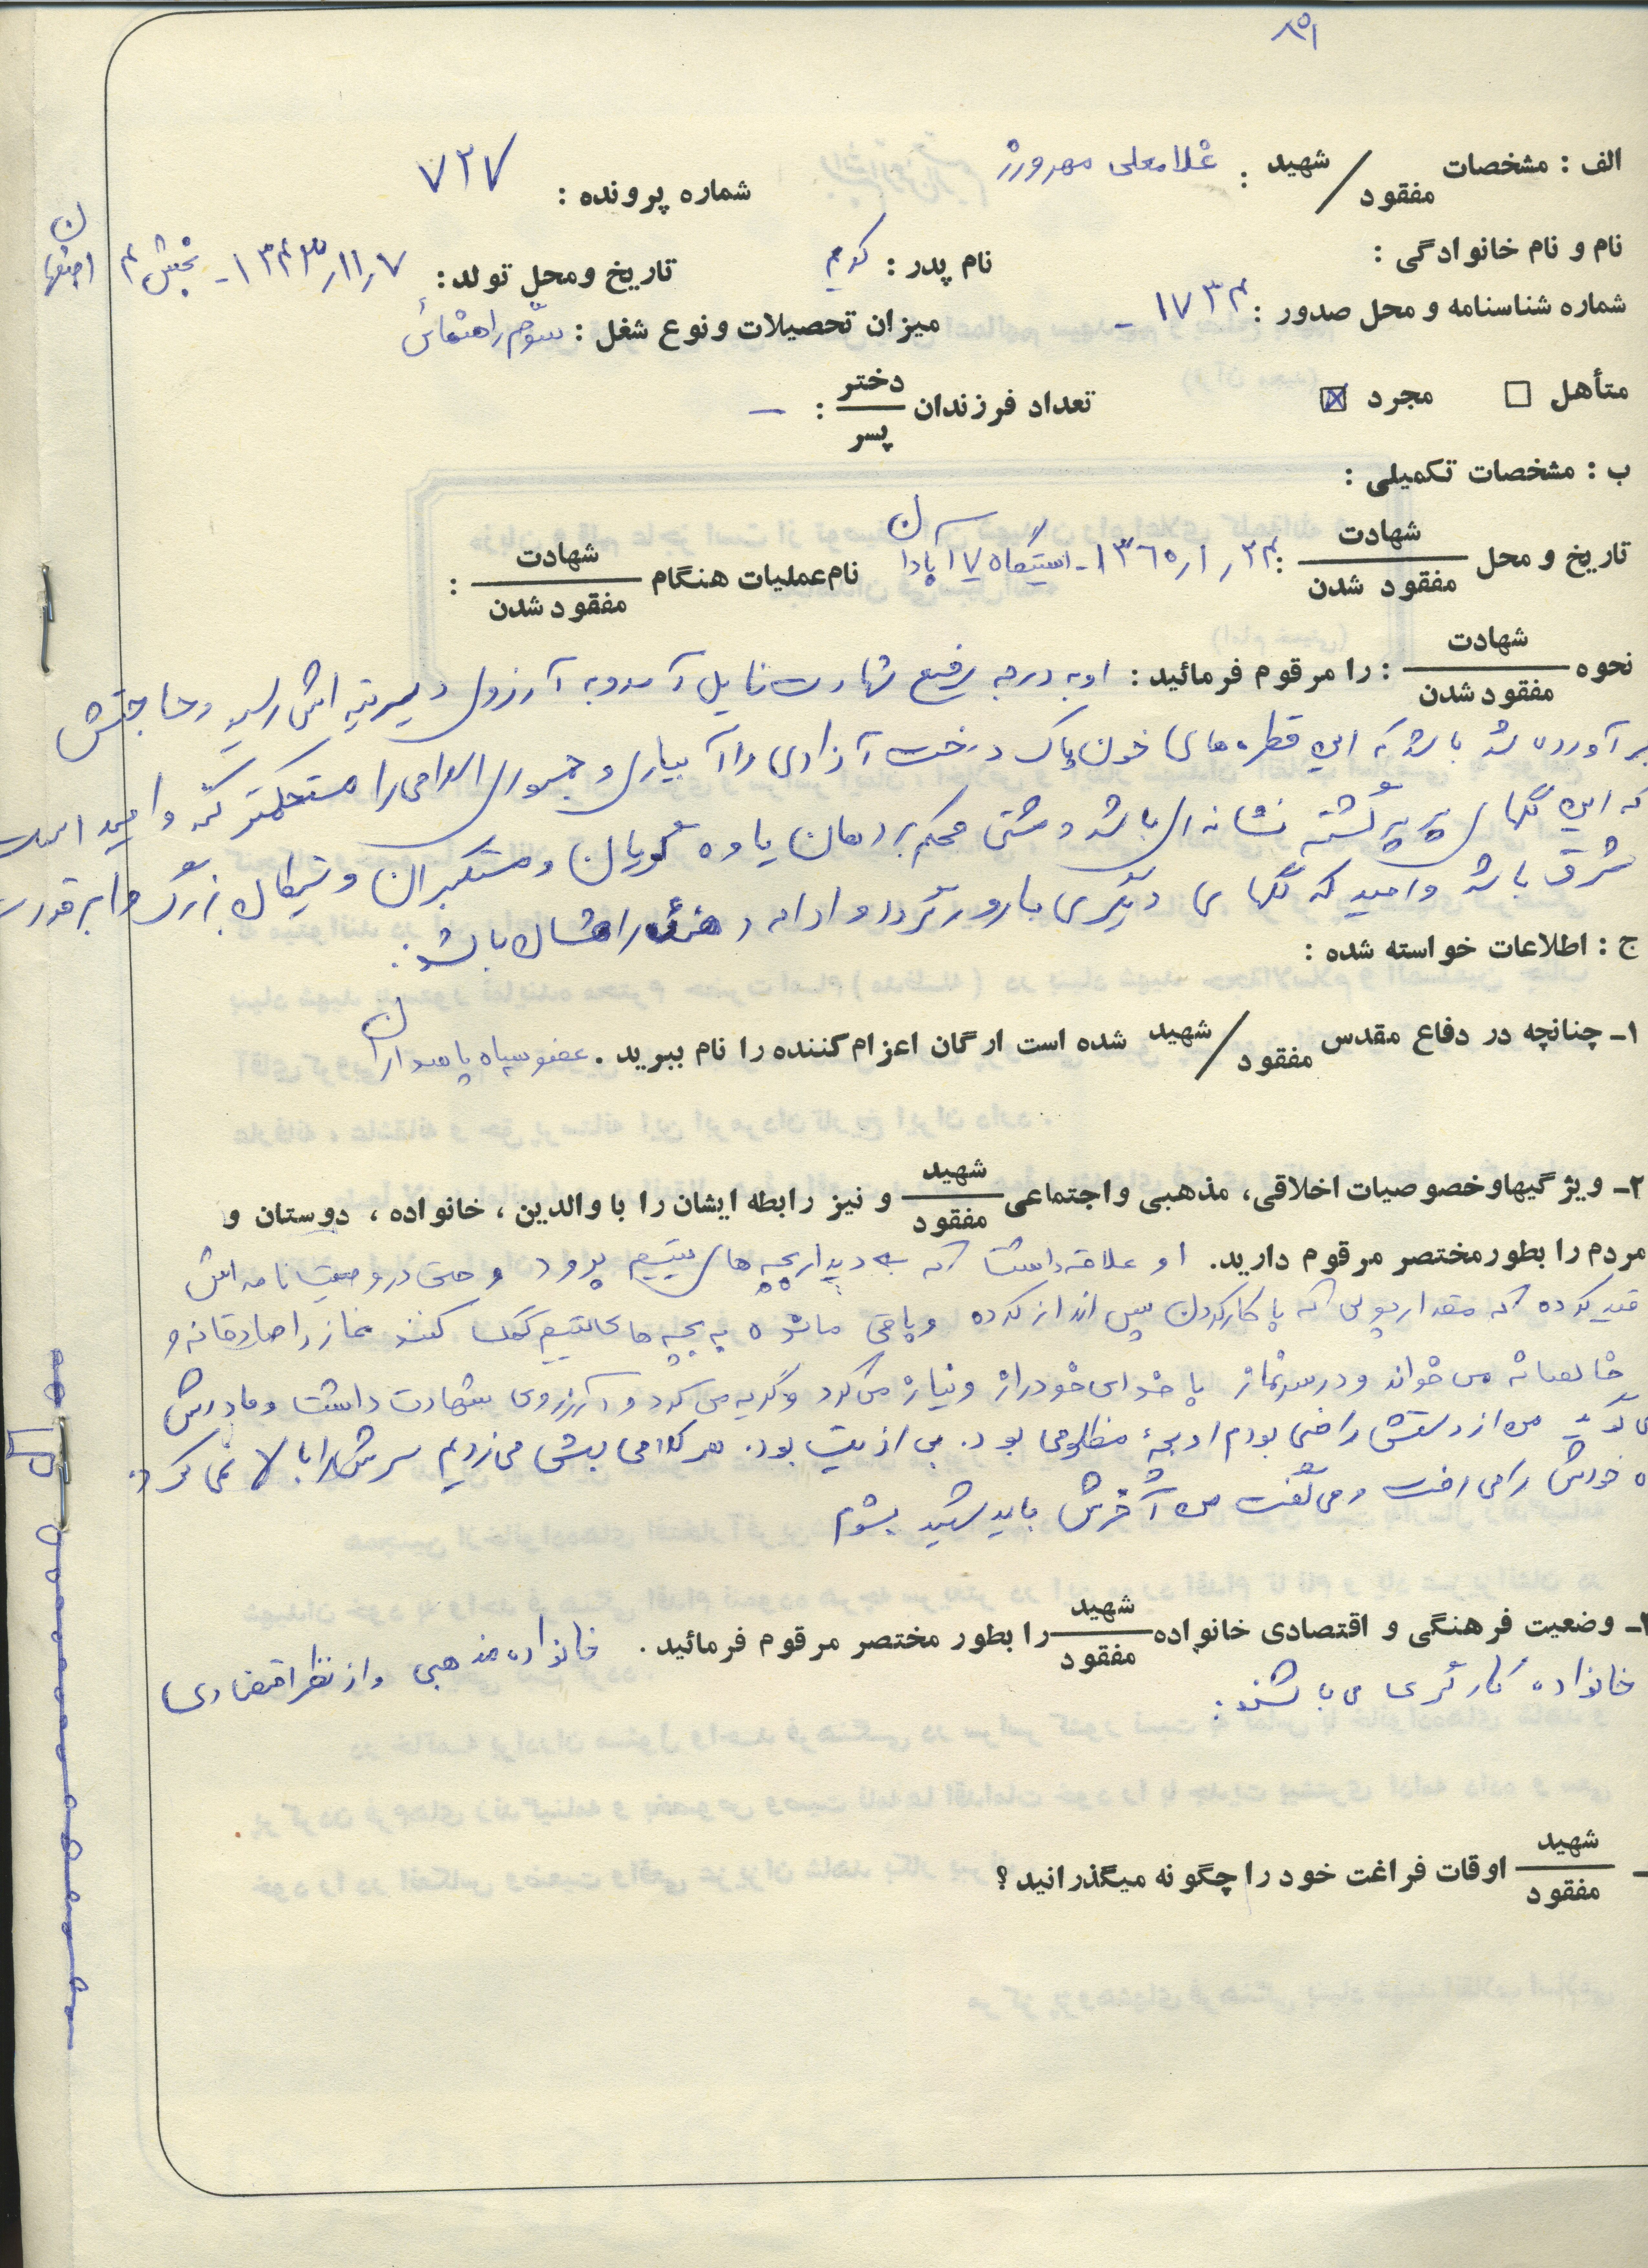 ۸۵۱
الف : مشخصات شهید / مفقود : غلامعلی مهرورز شماره پرونده : ۷۲۷
نام و نام خانوادگی : نام پدر : کریم تاریخ ومحل تولد : ۱۳۴۳/۱۱/۷ - بخش ۴ اصفهان
شماره شناسنامه و محل صدور : ۱۷۳۴ - میزان تحصیلات ونوع شغل : سوّم راهنمائی
متأهل ☐ مجرد ☒ تعداد فرزندان دختر / پسر : —
ب : مشخصات تکمیلی :
تاریخ و محل شهادت / مفقود شدن : ۱۳۶۰/۱/۲۴ - ایستگاه ۱۷ آبادان نام عملیات هنگام شهادت / مفقود شدن :
نحوه شهادت / مفقود شدن : را مرقوم فرمائید : او به درجه رفیع شهادت نایل آمد و به آرزوی دیرینه اش رسید و حاجتش
برآورده شد باشد که این قطره های خون پاک درخت آزادی را آبیاری و جمهوری اسلامی را مستحکمتر کند و امید است
که این گلهای پرپر گشته نشانه ای باشد و مشتی محکم بر دهان یاوه گویان و مستکبران و بزرگ و ابرقدرت
شرق باشد و امید که گلهای دیگری بارور گردد و ادامه دهنده راهشان باشد.
ج : اطلاعات خواسته شده :
۱- چنانچه در دفاع مقدس شهید / مفقود شده است ارگان اعزام کننده را نام ببرید . عضو سپاه پاسداران
۲- ویژگیهاوخصوصیات اخلاقی، مذهبی واجتماعی شهید / مفقود و نیز رابطه ایشان را با والدین ، خانواده ، دوستان و
مردم را بطورمختصر مرقوم دارید. او علاقه داشت که به دیدار بچه های یتیم برود و حتی در وصیت نامه اش
قید کرده که مقدار پولی که با کار کردن پس انداز کرده و باقی مانده به بچه های یتیم کمک کنند نماز را صادقانه و
خالصانه می خواند و در سر نماز با خدای خود راز و نیاز می کرد و گریه می کرد و آرزوی شهادت داشت و مادرش
می گوید من از دستش راضی بودم او بچهٔ مظلومی بود. بی اذیت بود. هر کلامی بهش می زدیم سرش را بالا نمی کرد.
راه خودش را می رفت و می گفت من آخرش باید شهید بشوم
۳- وضعیت فرهنگی و اقتصادی خانواده شهید / مفقود را بطور مختصر مرقوم فرمائید . خانواده مذهبی و از نظر اقتصادی
خانواده کارگری می باشند.
- شهید / مفقود اوقات فراغت خود را چگونه میگذرانید ؟